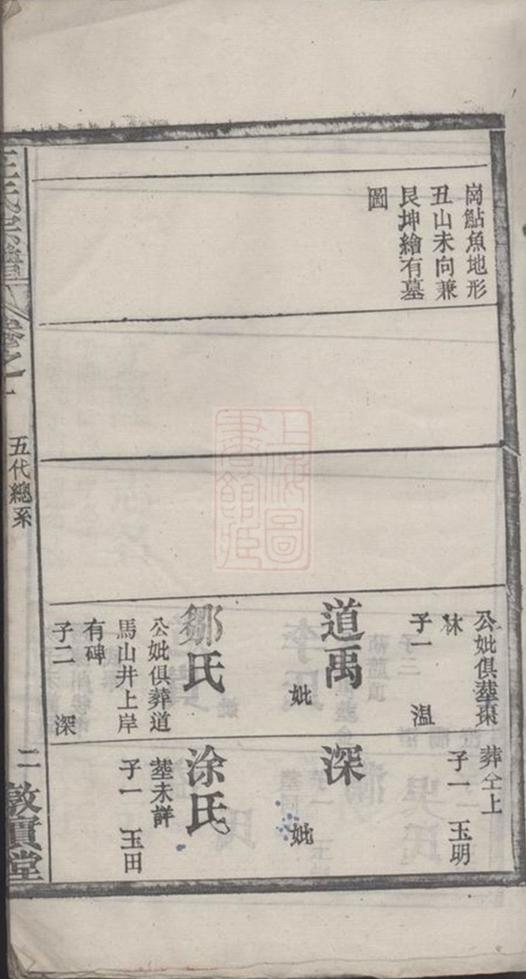 崗鮎魚地形
丑山未向兼
艮坤繪有墓
圖
公妣俱塟棗
林
子一 溫
道禹
妣
鄒氏
公妣俱葬道
馬山井上岸
有碑
子二 深
葬仝上
子一 玉明
深
妣
涂氏
塟未詳
子一 玉田
王氏宗譜
卷之一
五代總系
二
敦實堂
上海圖書館藏